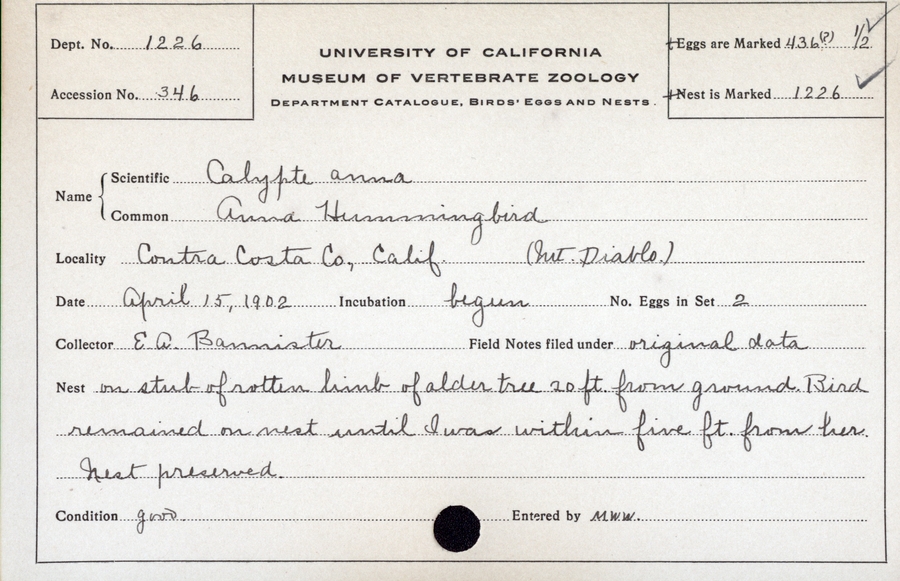 Dept. No. 1226
Accession No. 346
UNIVERSITY OF CALIFORNIA
MUSEUM OF VERTEBRATE ZOOLOGY
DEPARTMENT CATALOGUE, BIRDS' EGGS AND NESTS.
Eggs are Marked 436(?) 1/2
Nest is Marked 1226
Name
Scientific Calypte anna
Common Anna Hummingbird
Locality Contra Costa Co, Calif. (Mt. Diablo.)
Date April 15, 1902 Incubation begun No. Eggs in Set 2
Collector E. A. Bannister Field Notes filed under original data
Nest on stub of rotten limb of alder tree 20 ft. from ground. Bird
remained on nest until I was within five ft. from her.
Nest preserved.
Condition good. Entered by M.W.W.